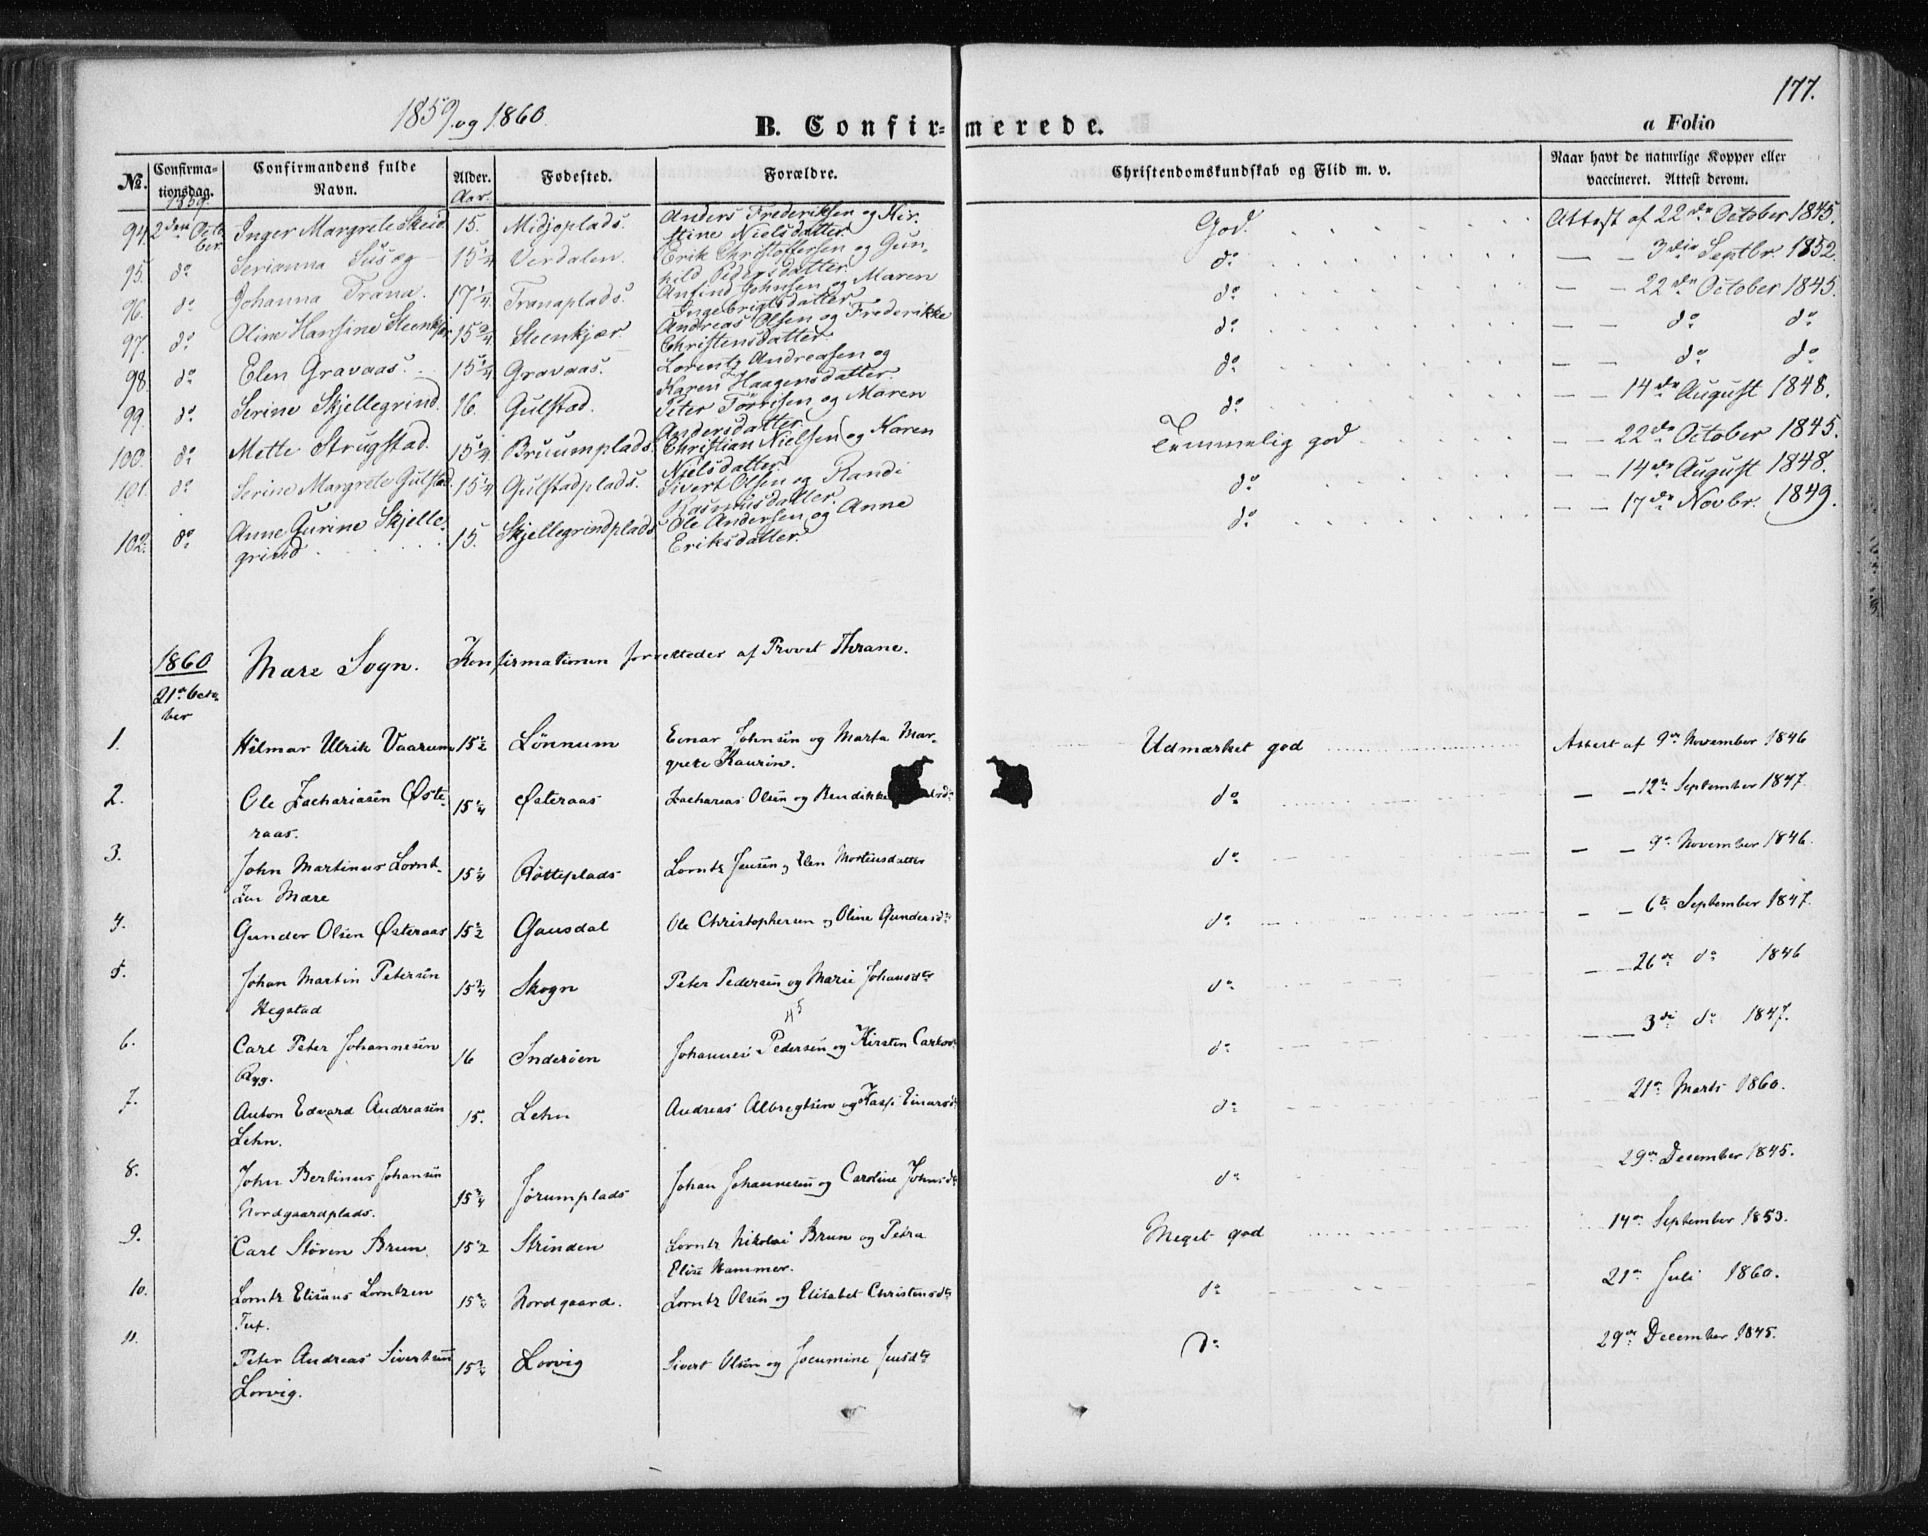 177.
1859 og 1860
B. Confirmerede.
a Folio
No.
Confirmationsdag.
Confirmandens fulde Navn.
Alder.
Aar.
Fødested.
Forældre.
Christendomskundskab og Flid m. v.
Naar havt de naturlige Kopper eller vaccineret. Attest derom.
1859.
94. 2den October Inger Margrete Skeid 15. Midjoplads. Anders Frederiksen og Kirstine Nielsdatter. God. Attest af 22de October 1845.
95. do Serianna 15 Verdalen. Erik Christoffersen og Gunhild Pedersdatter. do — — 3die Septbr. 1852.
96. do Johanna Trana. 17 1/4. Tranaplads. Anfind Johnsen og Maren Ingebrigtsdatter. do — — 22de October 1845.
97. do Oline Hansine Steenkjær 15 Steenkjær. Andreas Olsen og Frederikke Christensdatter. do — — do do
98. do Elen Gravaas. 15 Gravaas. Lorentz Andreasen og Karen Haagensdatter. do — — do do
99. do Serine Skjellegrind. 16. Gulstad. Peter Torrisen og Maren Andersdatter. do — — 14de August 1848.
100. do Mette Strugstad. 15 Bruumplads. Christian Nielsen og Karen Nielsdatter. Temmelig god — — 22de October 1845.
101. do Serine Margrete Gulstad. 15 Gulstadplads. Sivert Olsen og Randi Rasmusdatter. do — — 14de August 1848.
102. do Anne Gurine Skjellegrind 15. Skjellegrindplads Ole Andersen og Anne Eriksdatter. do — — 17de Novbr. 1849.
1860 Mære Sogn. Konfirmationen forrettedes af Provst Thrane.
21de October
1. Hilmar Ulrik Vaarum 15 1/2 Lønnum Einar Johnsen og Marta Margrete Kaurin. Udmærket god Attest af 9de November 1846
2. Ole Zachariasen Østeraas. 15 Østeraas Zacharias Olsen og Bendikke do — — 12te September 1847.
3. John Martinus Lorntzen Mære 15 Røtteplads Lorntz Jensen og Elen Mortensdatter do — — 9de November 1846.
4. Gunder Olsen Østeraas 15 1/2 Gausdal Ole Christophersen og Oline Gundersdtr do — — 6te September 1847.
5. Johan Martin Petersen Hegstad 15 Skogn Peter Pedersen og Marie Johansdtr do — — 26de do 1846
45
6. Carl Peter Johannesen Ryg. 16 Inderøen Johannes Pedersen og Kirsten Carlsdtr do — — 3die do 1847.
7. Anton Edvard Andreasen Lehn. 15. Lehn Andreas Albregtsen og Einarsdtr do 21de Marts 1860.
8. John Bertinus Johansen Nordgaardplads. 15 Jørumplads Johan Johannesen og Caroline Johnsdtr do 29de December 1845.
9. Carl Støren Brun. 15 1/2 Strinden Lorntz Nikolai Brun og Petra Elise Hammer. Meget god 14de September 1853.
10. Lorntz Elisæus Lorntzen Tuf. 15 Nordgaard. Lorntz Olsen og Elisabet Christensdtr do 21de Juli 1860.
11. Peter Andreas Sivertsen Lorvig. 15 Lorvig Sivert Olsen og Jocumine Jensdtr do 29de December 1845.